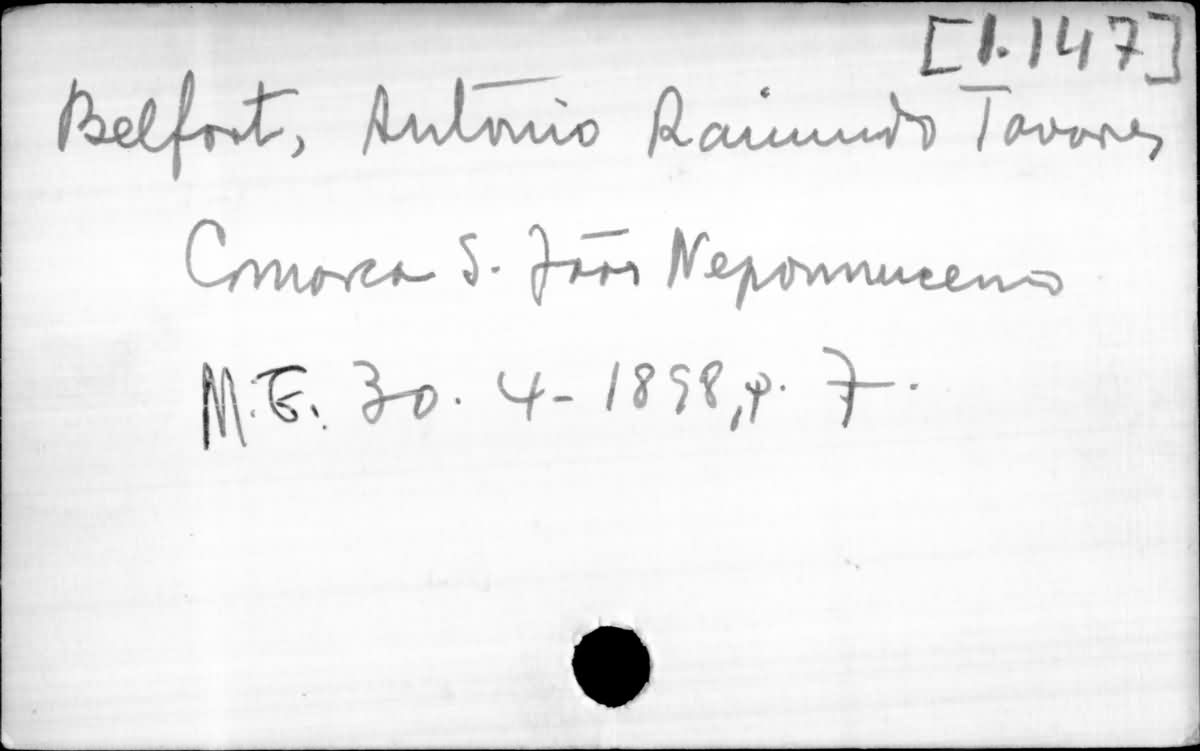 [1.147]
Belfort, António Raimundo Tavares
Comarca S. João Nepomuceno
M.G. 30.4-1898, p. 7.